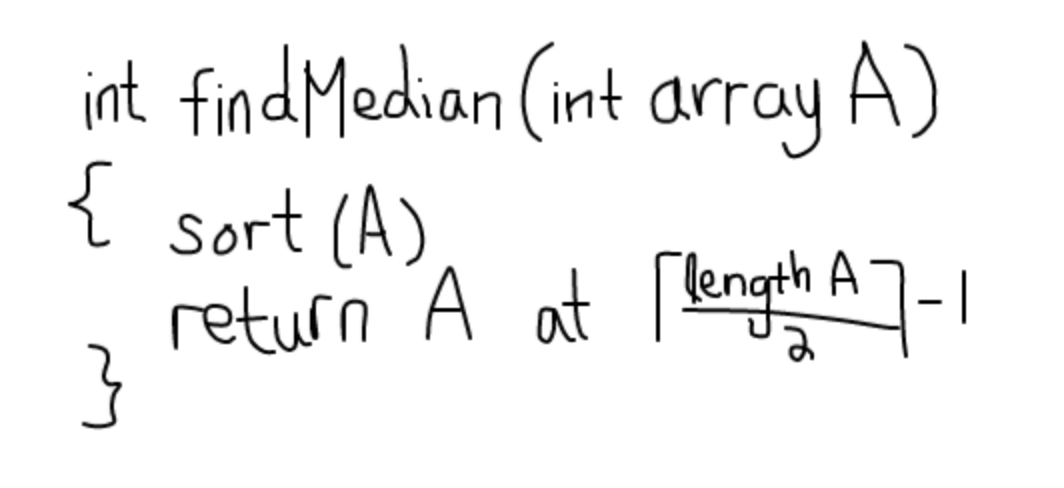 int findMedian(int array A)
{ sort (A)
return A at ⌈length A / 2⌉ - 1
}